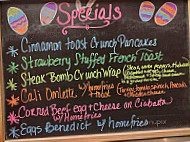 Specials
Cinnamon Toast Crunch Pancakes
Strawberry Stuffed French Toast
Steak Bomb Crunch Wrap
Cali Omlette w/ homefries & toast
Corned Beef egg + Cheese on Ciabatta
w/ Homefries
Eggs Benedict w/ homefries